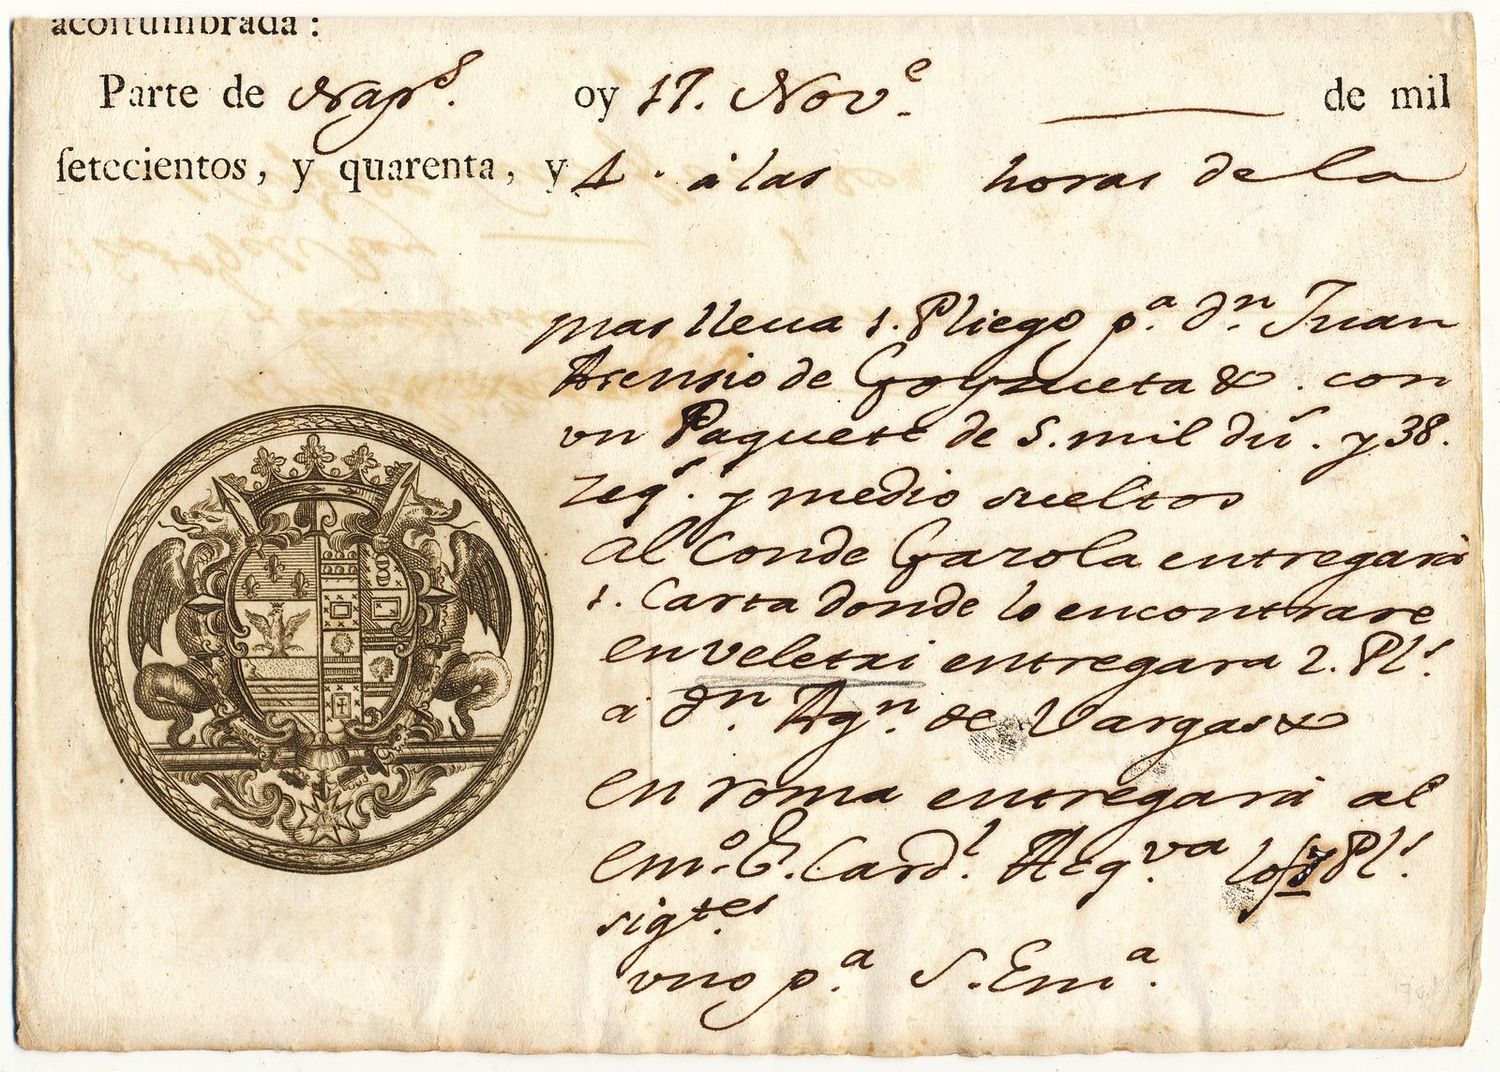 acoſtumbrada:
Parte de Nap.s oy 17. Nov.e de mil
ſetecientos, y quarenta, y 4. á las horas de la
mas lleua 1. Pliego p.a Dn Juan
Asensio de Goyzueta & . con
vn Paquete de 5. mil du.s y 38.
zeq.s y medio sueltos
al Conde Gazola entregará
1. Carta donde lo encontrare
en Veletri entregara 2. Pl.s
a Dn. Agn. de Vargas &
en roma entregará al
em.o S. Card.l Acq.va los 7 Pl.s
sigtes
vno p.a S. Em.a